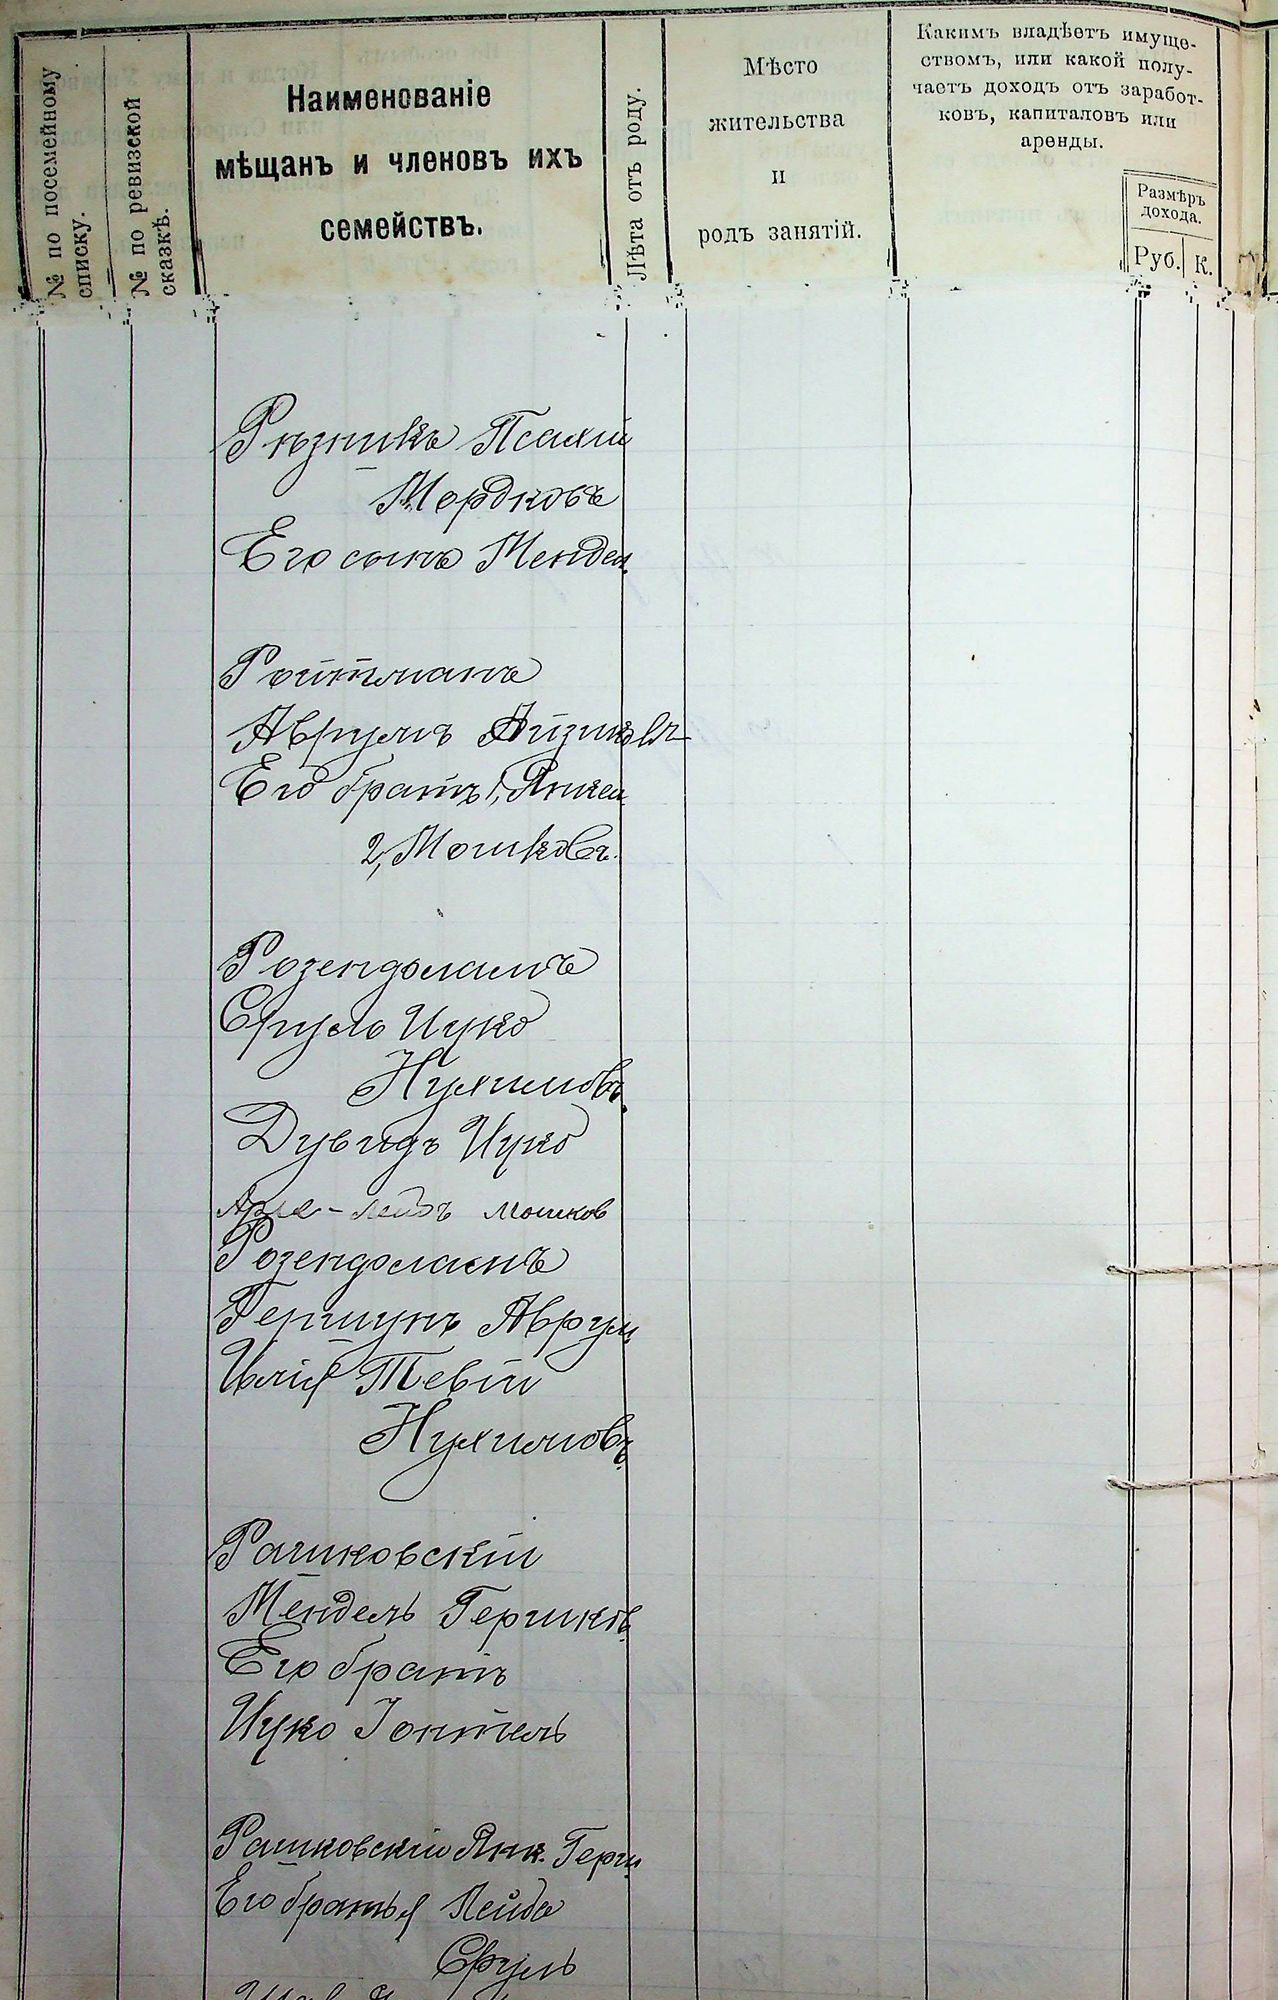 № по посемейному
списку.
№ по ревизской
сказкѣ.
Наименованіе
мѣщанъ и членовъ ихъ
семействъ.
Лѣта отъ роду.
Мѣсто
жительства
и
родъ занятій.
Какимъ владѣетъ имуще-
ствомъ, или какой полу-
чаетъ доходъ отъ заработ-
ковъ, капиталовъ или
аренды.
Размѣръ
дохода.
Руб. К.
Рѣзникъ Псахій
Мордковъ
Его сынъ Мендел.
Ройтманъ
Аврумъ Айзиковъ
Его братъ 1, Янкел
2, Мошковъ.
Розендоламъ
Сруль Ицко
Нухимовъ.
Дувидъ Ицко
Лейбъ Мошков
Розендоланъ
Гершунъ Аврум
Илія Тевій
Нухимовъ.
Рашковскій
Мендель Гершков.
Его братъ
Ицко Іонтель
Рашковскій Янк. Герш.
Его братья Лейба
Сруль